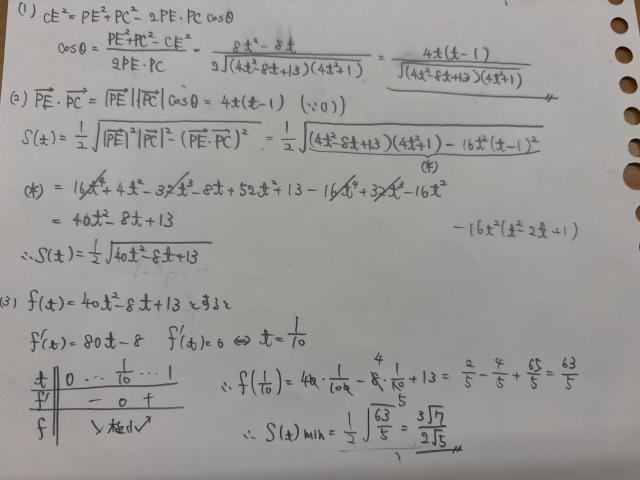 (1) CE² = PE² + PC² - 2PE・PC cosθ
cosθ = (PE² + PC² - CE²)/(2PE・PC) = (8t² - 8t)/(2√((4t²-8t+13)(4t²+1))) = 4t(t-1)/√((4t²-8t+13)(4t²+1))
(2) PE・PC = |PE||PC|cosθ = 4t(t-1) (∵(1))
S(t) = 1/2 √(|PE|²|PC|² - (PE・PC)²) = 1/2 √((4t²-8t+13)(4t²+1) - 16t²(t-1)²)
(*)
(*) = 16t⁴ + 4t² - 32t³ - 8t + 52t² + 13 - 16t⁴ + 32t³ - 16t²
= 40t² - 8t + 13
-16t²(t²-2t+1)
∴ S(t) = 1/2 √(40t² - 8t + 13)
(3) f(t) = 40t² - 8t + 13 とすると
f'(t) = 80t - 8 f'(t) = 0 ⇔ t = 1/10
t 0 … 1/10 … 1
f' - 0 +
f ↘ 極小 ↗
∴ f(1/10) = 40・1/100 - 8・1/10 + 13 = 2/5 - 4/5 + 65/5 = 63/5
∴ S(t) min = 1/2 √(63/5) = 3√7/2√5